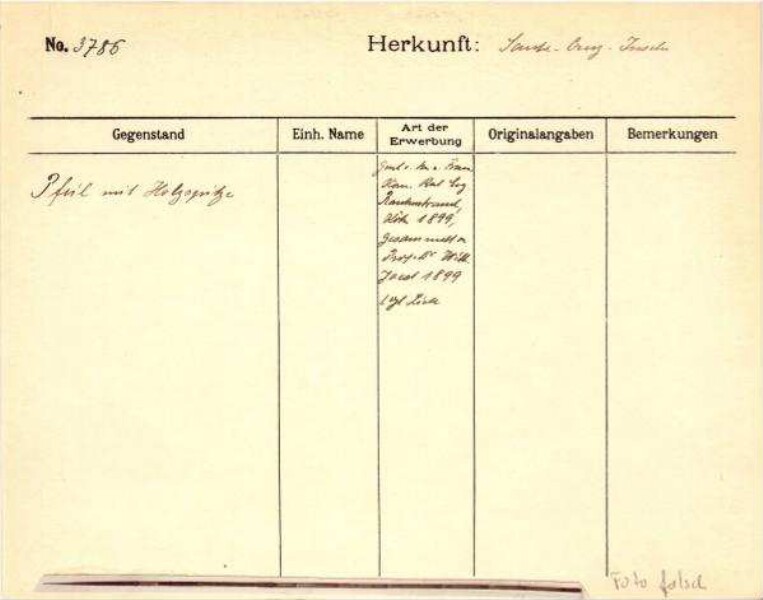 No. 3786
Herkunft: Santa-Cruz-Inseln
Gegenstand
Einh. Name
Art der
Erwerbung
Originalangaben
Bemerkungen
Pfeil mit Holzspitze
Rautenstrauch,
Köln 1899,
gesammelt v
Prof. Dr Wilh.
Joest 1899
Foto falsch